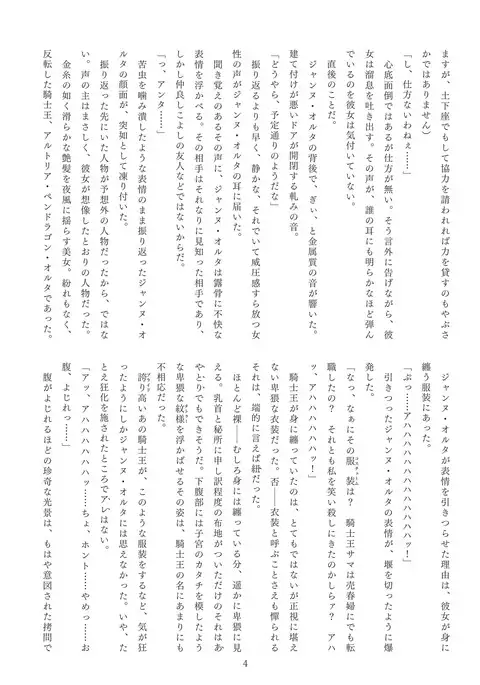 ますが、土下座でもして協力を請われれば力を貸すのもやぶさ
かではありません）
「し、仕方ないわねぇ……」
心底面倒ではあるが仕方が無い。そう言外に告げながら、彼
女は溜息を吐き出す。その声が、誰の耳にも明らかなほど弾ん
でいるのを彼女は気付いていない。
直後のことだ。
ジャンヌ・オルタの背後で、ぎぃ、と金属質の音が響いた。
建て付けが悪いドアが開閉する軋みの音。
「どうやら、予定通りのようだな」
振り返るよりも早く、静かな、それでいて威圧感すら放つ女
性の声がジャンヌ・オルタの耳に届いた。
聞き覚えのあるその声に、ジャンヌ・オルタは露骨に不快な
表情を浮かべる。その相手はそれなりに見知った相手であり、
しかし仲良しこよしの友人などではないからだ。
「っ、アンタ……」
苦虫を噛み潰したような表情のまま振り返ったジャンヌ・オ
ルタの顔面が、突如として凍り付いた。
振り返った先にいた人物が予想外の人物だったから、ではな
い。声の主はまさしく、彼女が想像したとおりの人物だった。
金糸の如く滑らかな艶髪を夜風に揺らす美女。紛れもなく、
反転した騎士王、アルトリア・ペンドラゴン・オルタであった。
ジャンヌ・オルタが表情を引きつらせた理由は、彼女が身に
纏う服装にあった。
「ぷっ……アハハハハハハハハハッ！」
引きつったジャンヌ・オルタの表情が、堰を切ったように爆
発した。
「なっ、なぁにその服、装は？　騎士王サマは売春婦にでも転
職したの？　それとも私を笑い殺しにきたのかしらァ？　アハ
ッ、アハハハハハハッ！」
騎士王が身に纏っていたのは、とてもではないが正視に堪え
ない卑猥な衣装だった。否――衣装と呼ぶことさえも憚られる
それは、端的に言えば紐だった。
ほとんど裸――むしろ身には纏っている分、遥かに卑猥に見
える。乳首と秘所に申し訳程度の布地がついただけのそれはあ
やとりでもできそうだ。下腹部には子宮のカタチを模したよう
な卑猥な紋様を浮かばせるその姿は、騎士王の名にあまりにも
不相応だった。
誇り高いあの騎士王が、このような服装をするなど、気が狂
ったようにしかジャンヌ・オルタには思えなかった。いや、た
とえ狂化を施されたところでアレはない。
「アッ、アハハハハハハッ……ちょ、ホント……やめっ……お
腹、よじれっ……」
腹がよじれるほどの珍奇な光景は、もはや意図された拷問で
4